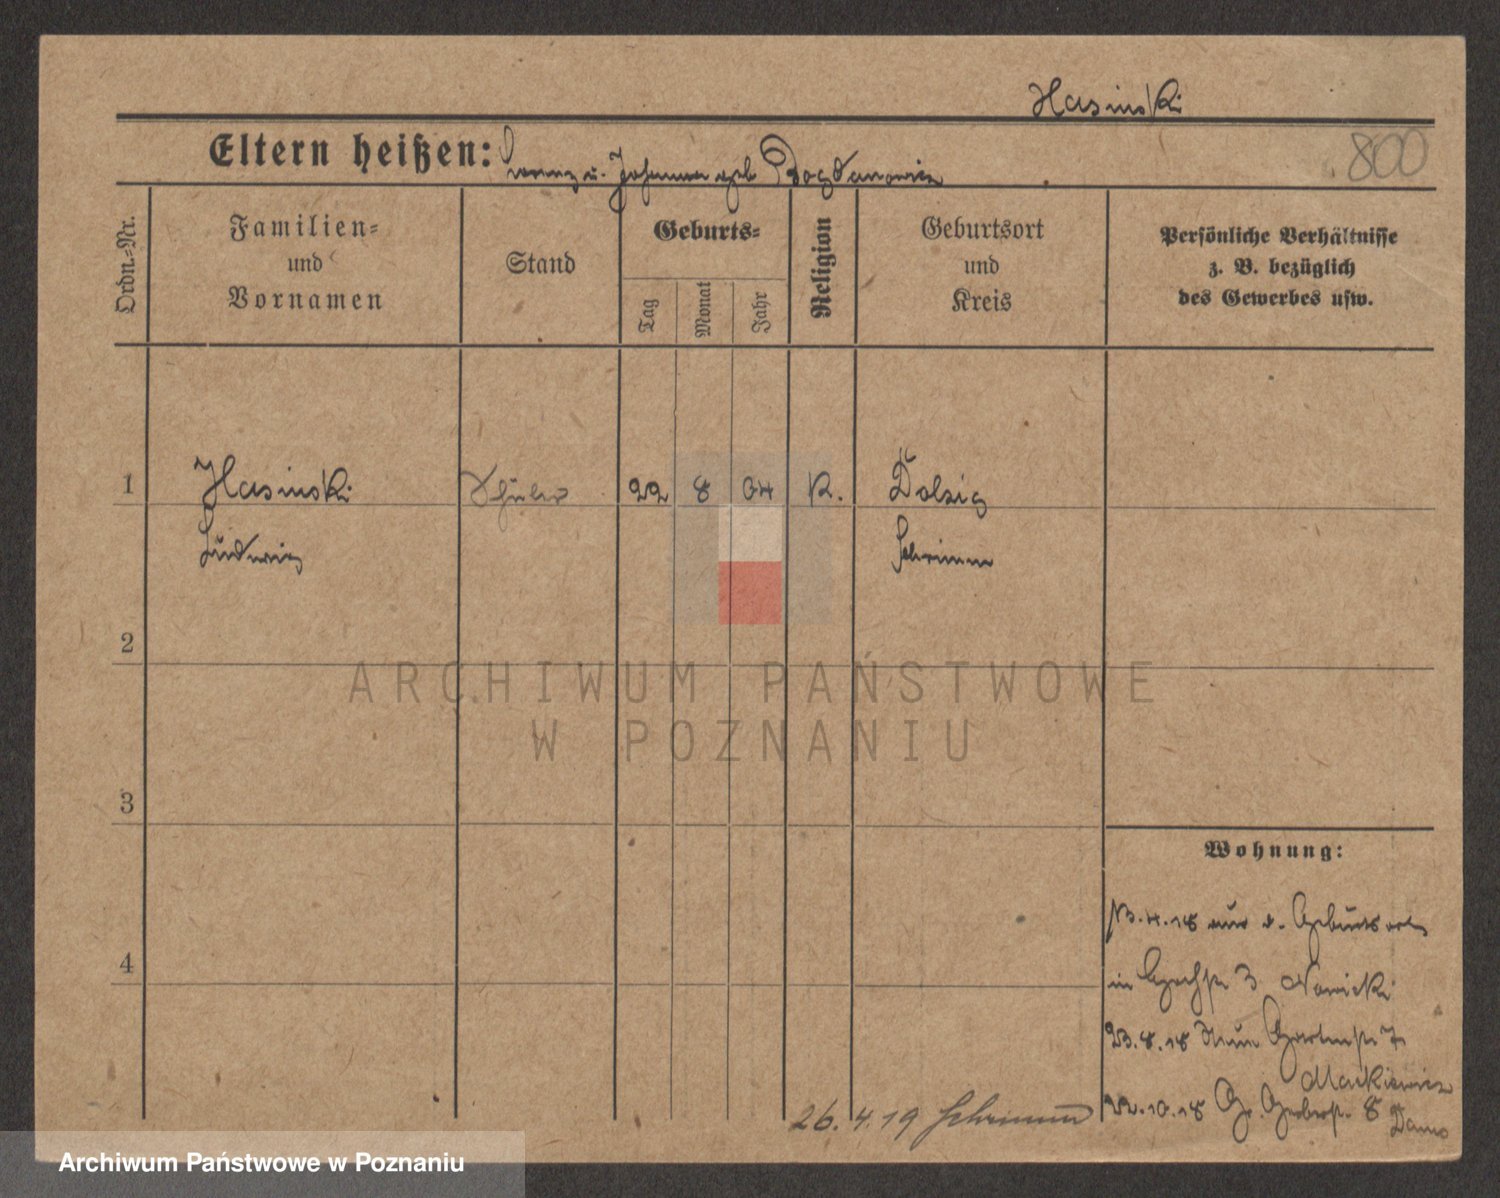 Hasinski
800
Eltern heißen: Lorenz u. Johanna geb Bogdanowicz
Ordn.-Nr.
Familien- und Vornamen
Stand
Geburts-
Tag
Monat
Jahr
Religion
Geburtsort und Kreis
Persönliche Verhältnisse
z. B. bezüglich
des Gewerbes usw.
1 Hasinski Schüler 22 8 04 K. Dolzig
Ludwig Schrimm
2
ARCHIWUM PAŃSTWOWE
W POZNANIU
3
Wohnung:
13.4.18 aus d. Geburtsort
4
in 3 Nowicki
23.8.18 Neue Gartenstr 7
Mackiewicz
22.10.18 Gr. Gerberstr. 8
26.4.19 Schrimm
Archiwum Państwowe w Poznaniu